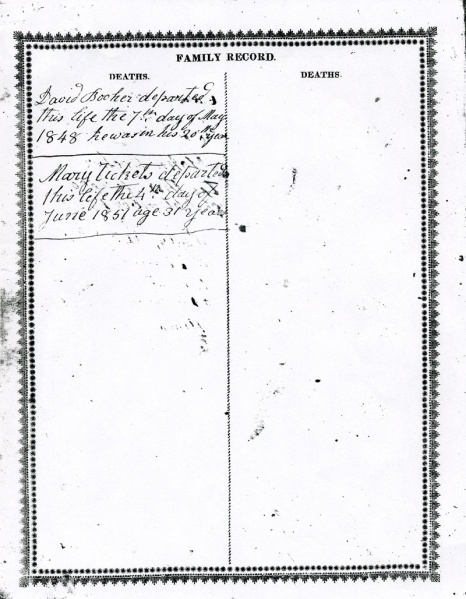 FAMILY RECORD.
DEATHS.
DEATHS.
David Booher departed
this life the 7th day of May
1848 he was in his 20th year
Mary tickets departed
this life the 4th day of
June 1851 age 31 years